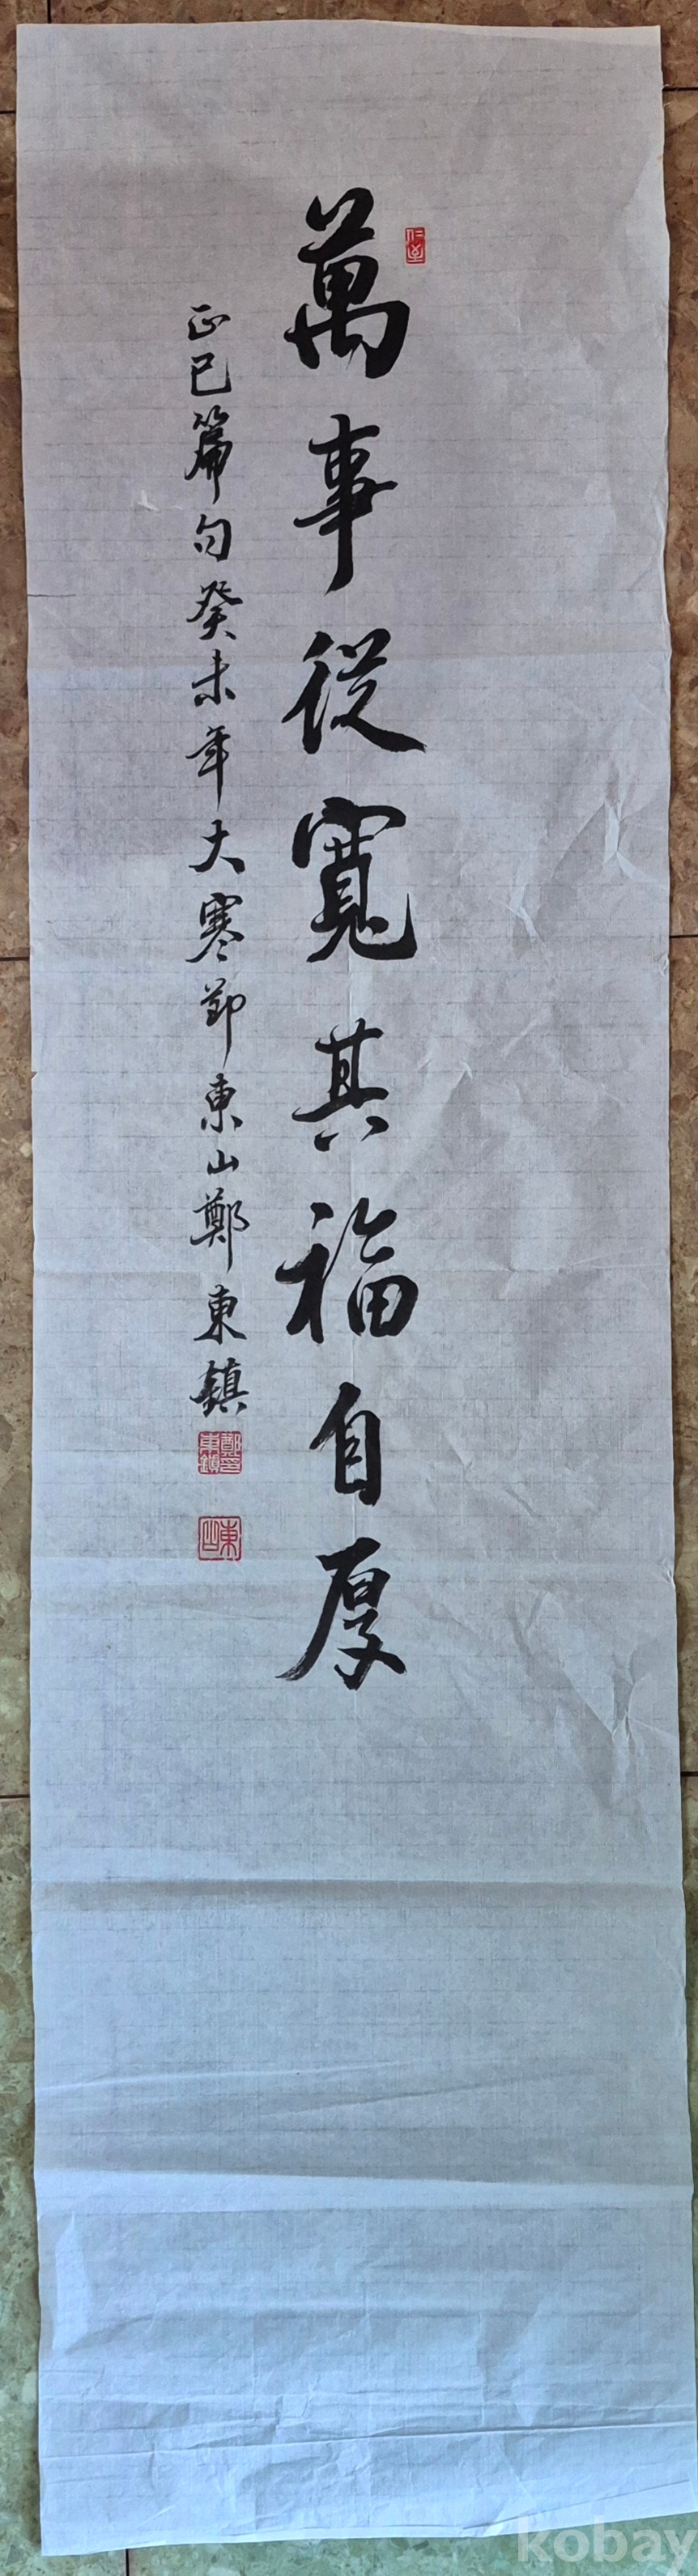 萬事從寬其福自厚
正己篇句癸未年大寒節東山鄭東鎮
鄭印東鎮
東山
kobay